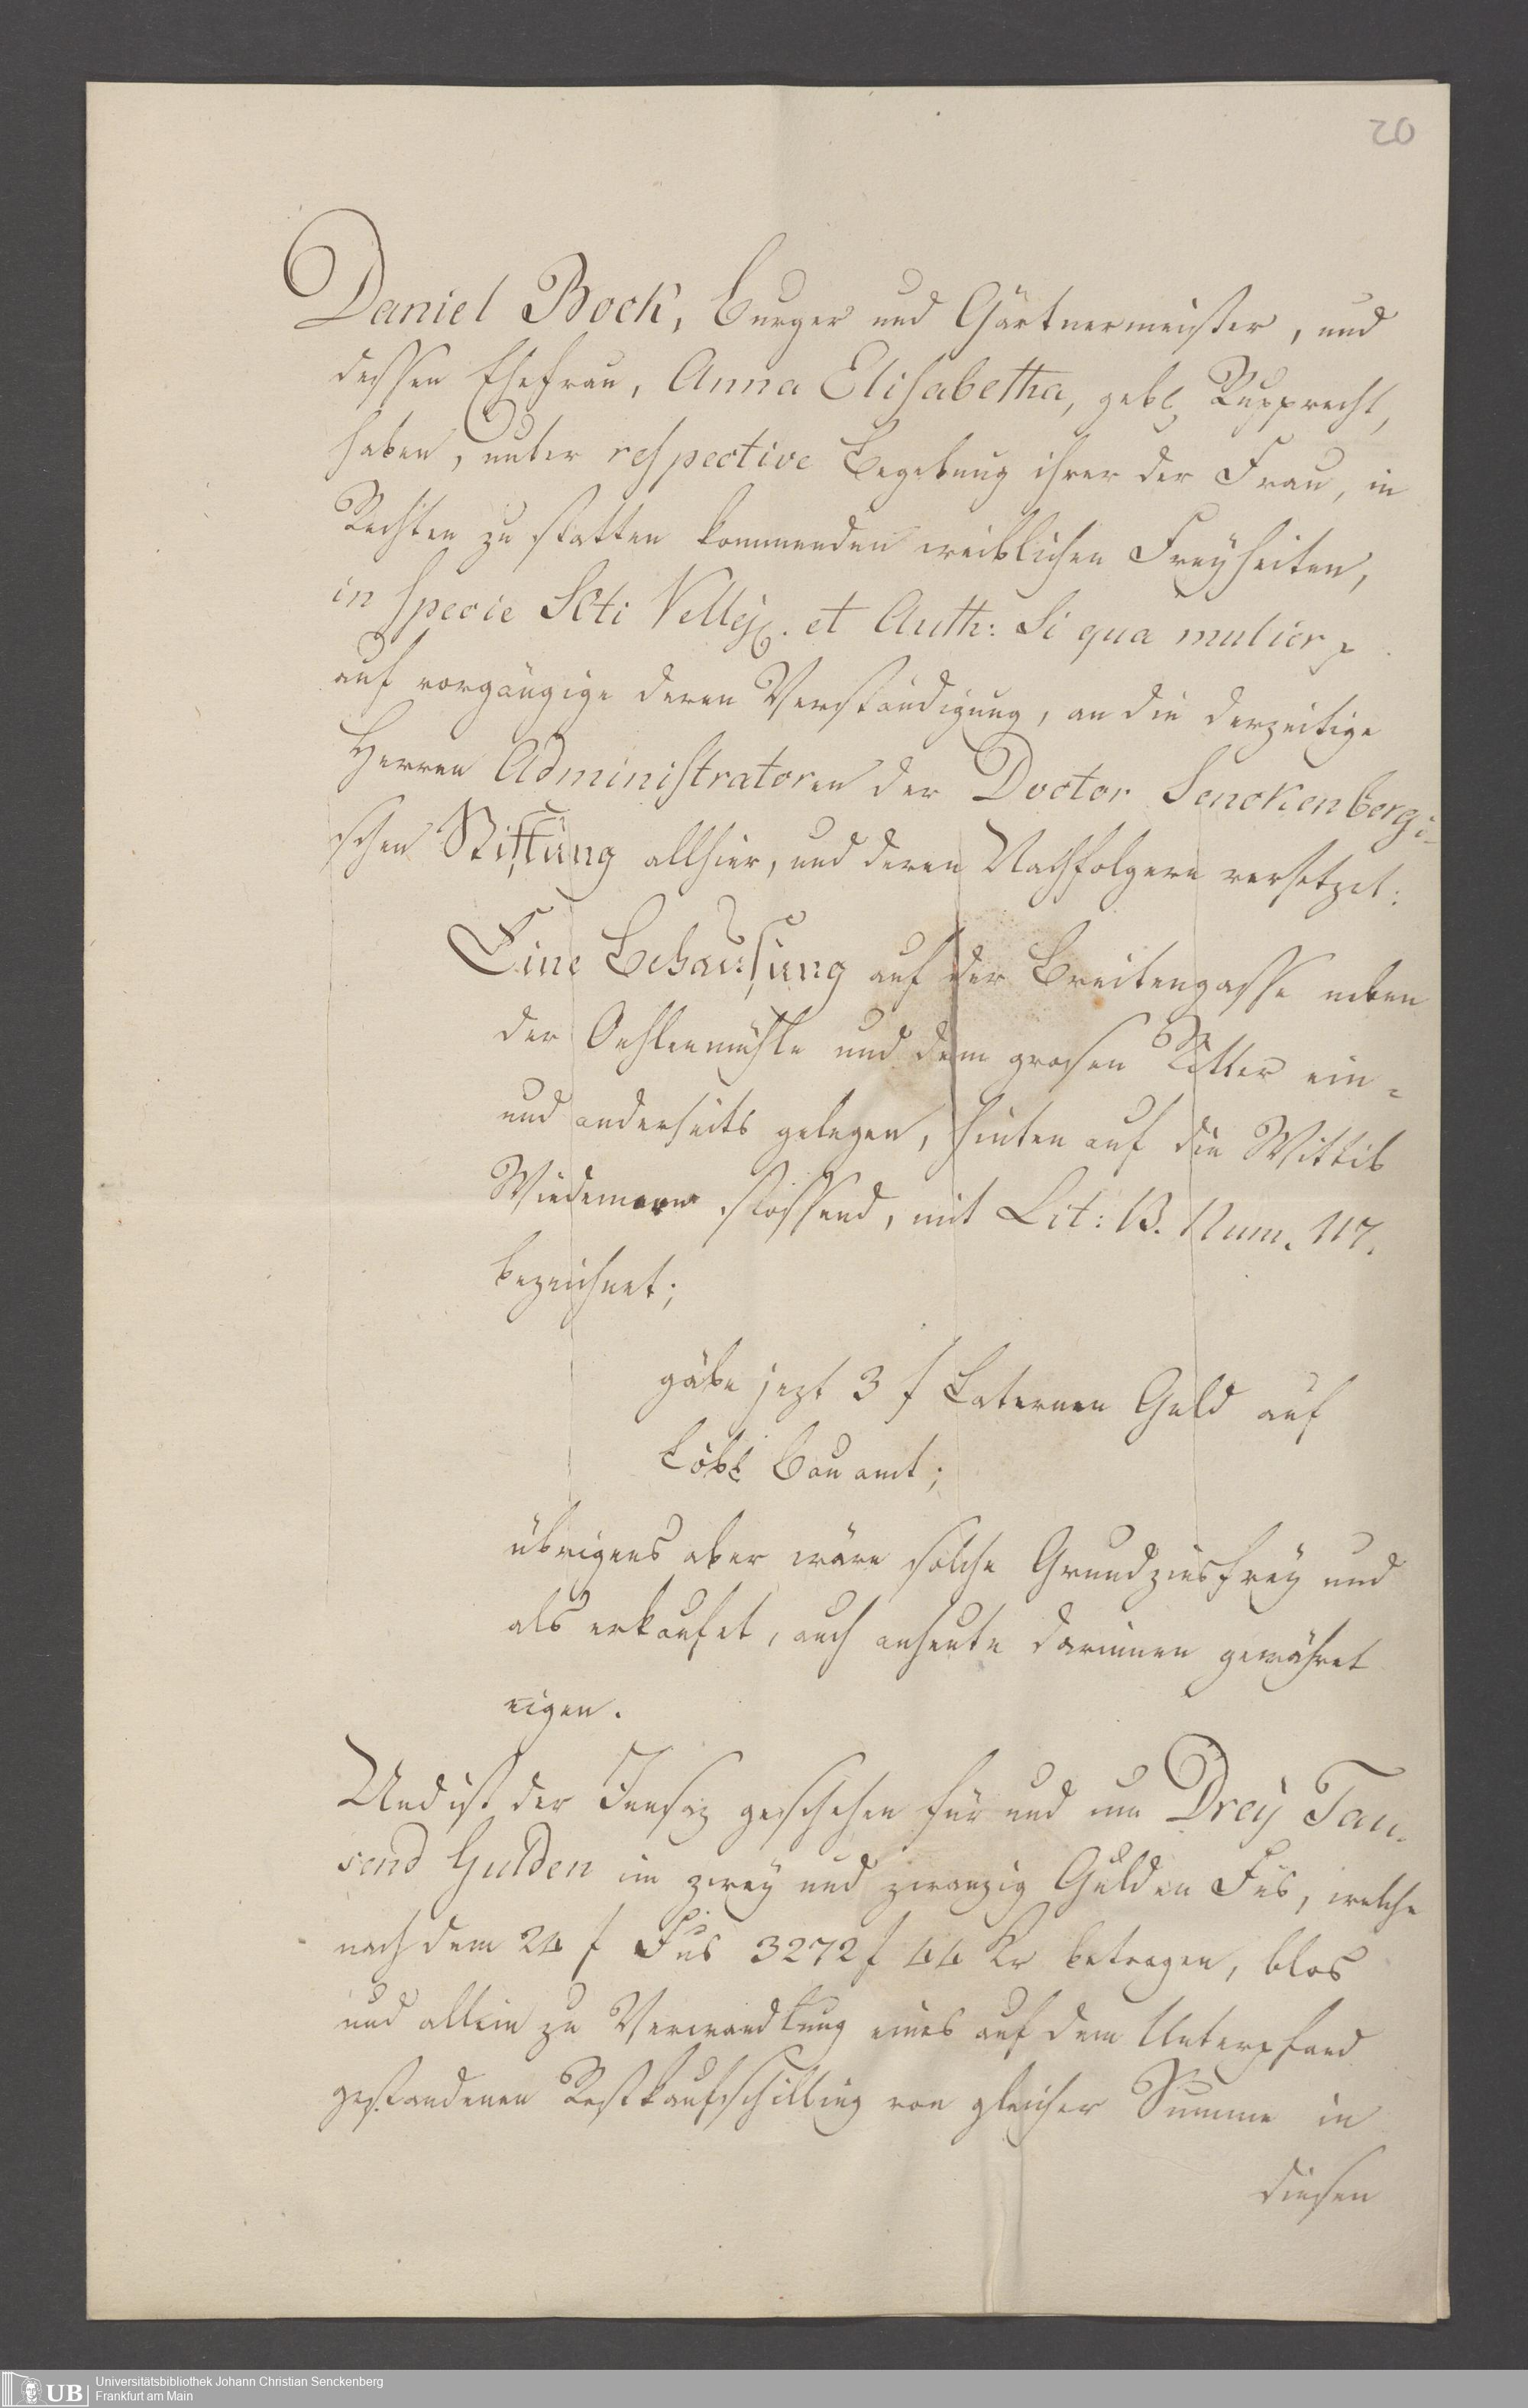 20
Daniel Bock, Burger und Gärtnermeister, und
dessen Ehefrau, Anna Elisabetha, gebl. Rupprecht,
haben, unter respective Begebung ihrer der Frau, in
Rechten zu statten kommenden weiblichen Freyheiten,
in specie SCti Vellej. et Auth: Si qua mulier
auf vorgängige deren Verständigung, an die derzeitige
Herren Administratoren der Doctor Senckenbergi-
schen Stiftung allhier, und deren Nachfolgere versetzet:
Eine Behausung auf der Breitengasse neben
der Oehlenmühle und dem grosen Ritter ein-
und anderseits gelegen, hinten auf die Wittib
Wiedemann stossend, mit Lit: B. Num. 117.
bezeichnet;
gäbe jezt 3 f Laternen Geld auf
Löbl Bauamt;
übrigens aber wäre solche Grundzinsfrey und
als erkaufet, auch anheute darinnen gewähret
eigen.
Und ist der Insaz geschehen für und um Drey Tau-
send Gulden im zwey und zwanzig Gulden Fus, welche
nach dem 24 f Fus 3272 f 44 Kr betragen, blos
und allein zu Verwandlung eines auf dem Unterpfand
gestandenen Restkaufschilling von gleicher Summe in
diesen
UB
Universitätsbibliothek Johann Christian Senckenberg
Frankfurt am Main